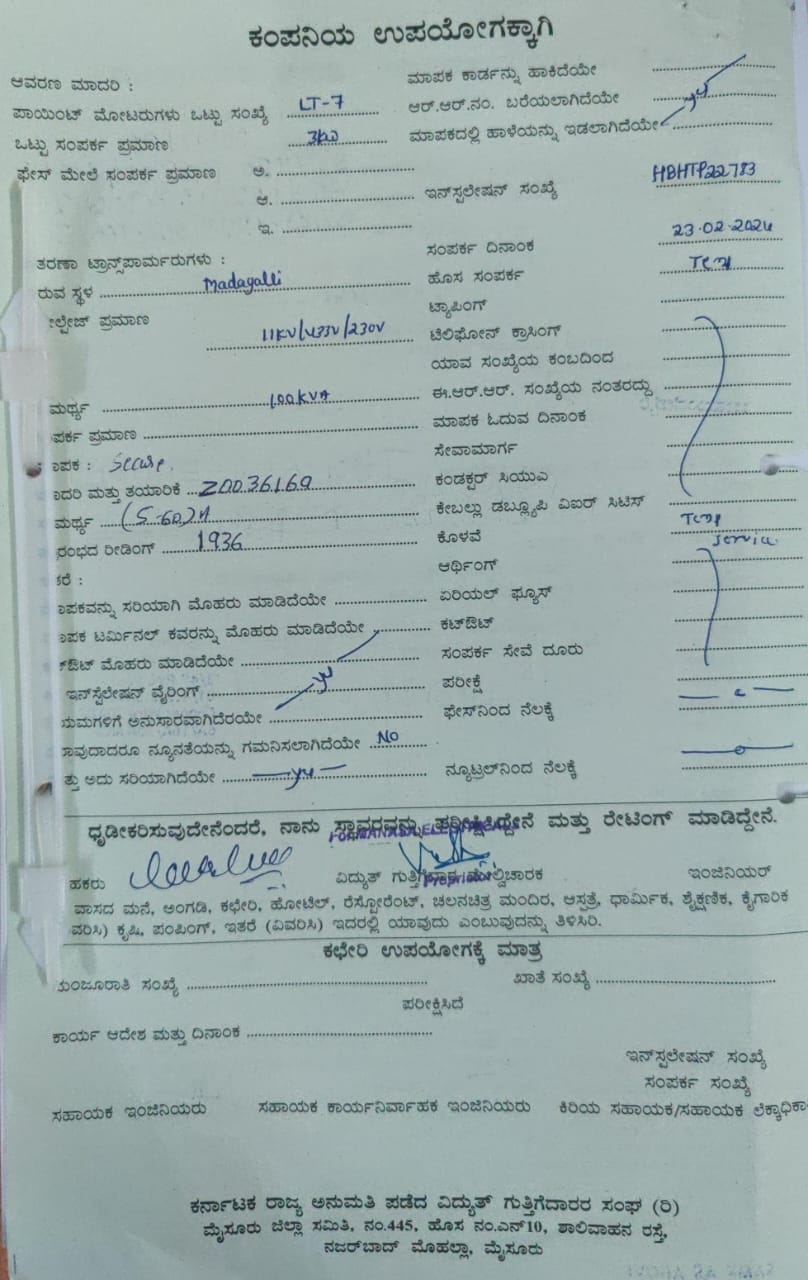 ಕಂಪನಿಯ ಉಪಯೋಗಕ್ಕಾಗಿ
ಆವರಣ ಮಾದರಿ :
ಮಾಪಕ ಕಾರ್ಡನ್ನು ಹಾಕಿದೆಯೇ
ಪಾಯಿಂಟ್ ಮೋಟರುಗಳು ಒಟ್ಟು ಸಂಖ್ಯೆ LT-7 ಆರ್.ಆರ್.ನಂ. ಬರೆಯಲಾಗಿದೆಯೇ
ಒಟ್ಟು ಸಂಪರ್ಕ ಪ್ರಮಾಣ 3KW ಮಾಪಕದಲ್ಲಿ ಹಾಳೆಯನ್ನು ಇಡಲಾಗಿದೆಯೇ
ಫೇಸ್ ಮೇಲೆ ಸಂಪರ್ಕ ಪ್ರಮಾಣ ಅ.
ಆ. ಇನ್‌ಸ್ಟಲೇಷನ್ ಸಂಖ್ಯೆ HBHTP22783
ಇ.
ಸಂಪರ್ಕ ದಿನಾಂಕ 23.02.2024
ತರಣಾ ಟ್ರಾನ್ಸ್‌ಪಾರ್ಮರುಗಳು :
ರುವ ಸ್ಥಳ Madagalli ಹೊಸ ಸಂಪರ್ಕ Temp
ಟ್ಯಾಪಿಂಗ್
ಲ್ಟೇಜ್ ಪ್ರಮಾಣ 11KV/433V/230V ಟೆಲಿಫೋನ್ ಕ್ರಾಸಿಂಗ್
ಯಾವ ಸಂಖ್ಯೆಯ ಕಂಬದಿಂದ
ಮರ್ಥ್ಯ 100KVA ಈ.ಆರ್.ಆರ್. ಸಂಖ್ಯೆಯ ನಂತರದ್ದು
ಪರ್ಕ ಪ್ರಮಾಣ ಮಾಪಕ ಓದುವ ದಿನಾಂಕ
ಾಪಕ : Secure. ಸೇವಾಮಾರ್ಗ
ಾದರಿ ಮತ್ತು ತಯಾರಿಕೆ Z0036169 ಕಂಡಕ್ಟರ್ ಸಿಯುಎ
ಮರ್ಥ್ಯ (5-60)A ಕೇಬಲ್ಲು ಡಬ್ಲ್ಯೂಪಿ ವಿಐಆರ್ ಸಿಟಿಸ್
ರಂಭದ ರೀಡಿಂಗ್ 1936 ಕೊಳವೆ Temp service
ಕರೆ : ಆರ್ಥಿಂಗ್
ಾಪಕವನ್ನು ಸರಿಯಾಗಿ ಮೊಹರು ಮಾಡಿದೆಯೇ ಏರಿಯಲ್ ಫ್ಯೂಸ್
ಾಪಕ ಟರ್ಮಿನಲ್ ಕವರನ್ನು ಮೊಹರು ಮಾಡಿದೆಯೇ ಕಟ್‌ಔಟ್
ಕ್‌ಔಟ್ ಮೊಹರು ಮಾಡಿದೆಯೇ ಸಂಪರ್ಕ ಸೇವೆ ದೂರು
ಇನ್‌ಸ್ಟೆಲೇಷನ್ ವೈರಿಂಗ್ ಪರೀಕ್ಷೆ
ಯಮಗಳಿಗೆ ಅನುಸಾರವಾಗಿದೆರಯೇ ಫೇಸ್‌ನಿಂದ ನೆಲಕ್ಕೆ
ಾವುದಾದರೂ ನ್ಯೂನತೆಯನ್ನು ಗಮನಿಸಲಾಗಿದೆಯೇ No
ತ್ತು ಅದು ಸರಿಯಾಗಿದೆಯೇ ನ್ಯೂಟ್ರಲ್‌ನಿಂದ ನೆಲಕ್ಕೆ
ಧೃಡೀಕರಿಸುವುದೇನೆಂದರೆ, ನಾನು ಸ್ಥಾವರವನ್ನು ಪರೀಕ್ಷಿಸಿದ್ದೇನೆ ಮತ್ತು ರೇಟಿಂಗ್ ಮಾಡಿದ್ದೇನೆ.
ಹಕರು ವಿದ್ಯುತ್ ಗುತ್ತಿಗೆದಾರ ಮೇಲ್ವಿಚಾರಕ ಇಂಜಿನಿಯರ್
Proprietor
ವಾಸದ ಮನೆ, ಅಂಗಡಿ, ಕಛೇರಿ, ಹೋಟೆಲ್, ರೆಸ್ಟೋರೆಂಟ್, ಚಲನಚಿತ್ರ ಮಂದಿರ, ಆಸ್ಪತ್ರೆ, ಧಾರ್ಮಿಕ, ಶೈಕ್ಷಣಿಕ, ಕೈಗಾರಿಕ
ವರಿಸಿ) ಕೃಷಿ, ಪಂಪಿಂಗ್, ಇತರೆ (ವಿವರಿಸಿ) ಇದರಲ್ಲಿ ಯಾವುದು ಎಂಬುವುದನ್ನು ತಿಳಿಸಿರಿ.
ಕಛೇರಿ ಉಪಯೋಗಕ್ಕೆ ಮಾತ್ರ
ಮಂಜೂರಾತಿ ಸಂಖ್ಯೆ ಖಾತೆ ಸಂಖ್ಯೆ
ಪರೀಕ್ಷಿಸಿದೆ
ಕಾರ್ಯ ಆದೇಶ ಮತ್ತು ದಿನಾಂಕ
ಇನ್‌ಸ್ಟಲೇಷನ್ ಸಂಖ್ಯೆ
ಸಂಪರ್ಕ ಸಂಖ್ಯೆ
ಸಹಾಯಕ ಇಂಜಿನಿಯರು ಸಹಾಯಕ ಕಾರ್ಯನಿರ್ವಾಹಕ ಇಂಜಿನಿಯರು ಕಿರಿಯ ಸಹಾಯಕ/ಸಹಾಯಕ ಲೆಕ್ಕಾಧಿಕಾ
ಕರ್ನಾಟಕ ರಾಜ್ಯ ಅನುಮತಿ ಪಡೆದ ವಿದ್ಯುತ್ ಗುತ್ತಿಗೆದಾರರ ಸಂಘ (ರಿ)
ಮೈಸೂರು ಜಿಲ್ಲಾ ಸಮಿತಿ, ನಂ.445, ಹೊಸ ನಂ.ಎನ್10, ಶಾಲಿವಾಹನ ರಸ್ತೆ,
ನಜರ್‌ಬಾದ್ ಮೊಹಲ್ಲಾ, ಮೈಸೂರು